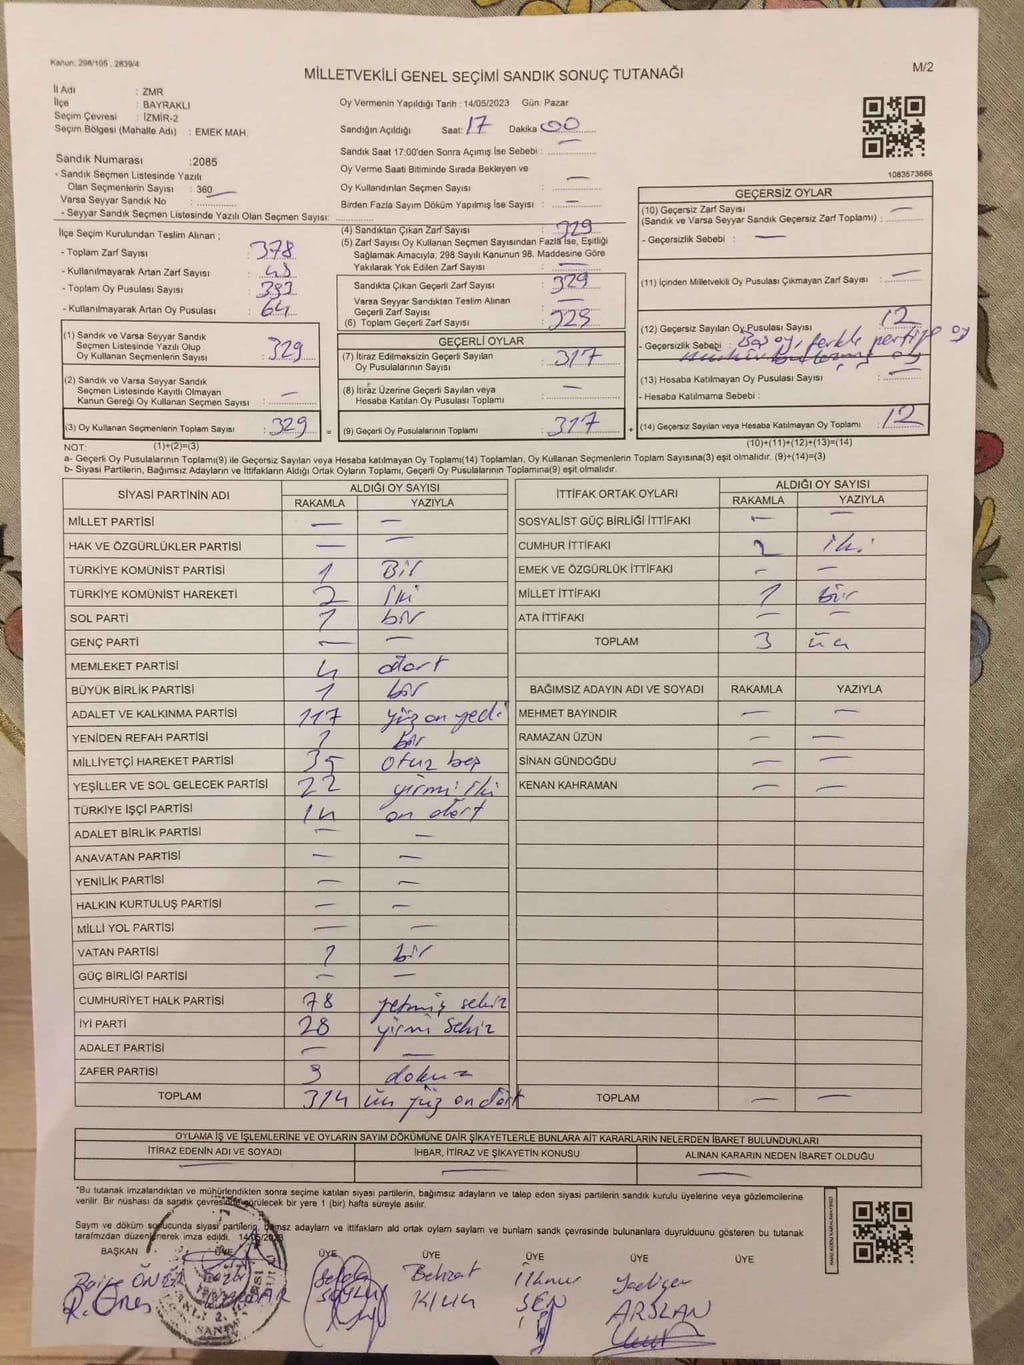 Kanun, 298/105 , 2839/4
MİLLETVEKİLİ GENEL SEÇİMİ SANDIK SONUÇ TUTANAĞI
M/2
İl Adı : ZMR
İlçe : BAYRAKLI
Seçim Çevresi : İZMİR-2
Seçim Bölgesi (Mahalle Adı) : EMEK MAH.
Sandık Numarası :2085
- Sandık Seçmen Listesinde Yazılı
Olan Seçmenlerin Sayısı : 360
Varsa Seyyar Sandık No :
- Seyyar Sandık Seçmen Listesinde Yazılı Olan Seçmen Sayısı:
Oy Vermenin Yapıldığı Tarih : 14/05/2023 Gün: Pazar
Sandığın Açıldığı Saat: 17 Dakika 00
Sandık Saat 17:00'den Sonra Açılmış İse Sebebi : —
Oy Verme Saati Bitiminde Sırada Bekleyen ve
Oy Kullandırılan Seçmen Sayısı : —
Birden Fazla Sayım Döküm Yapılmış İse Sayısı : —
1083573666
İlçe Seçim Kurulundan Teslim Alınan ;
- Toplam Zarf Sayısı : 378
- Kullanılmayarak Artan Zarf Sayısı :
- Toplam Oy Pusulası Sayısı : 393
- Kullanılmayarak Artan Oy Pusulası : 64
(1) Sandık ve Varsa Seyyar Sandık
Seçmen Listesinde Yazılı Olup
Oy Kullanan Seçmenlerin Sayısı : 329
(2) Sandık ve Varsa Seyyar Sandık
Seçmen Listesinde Kayıtlı Olmayan
Kanun Gereği Oy Kullanan Seçmen Sayısı : —
(3) Oy Kullanan Seçmenlerin Toplam Sayısı : 329
(4) Sandıktan Çıkan Zarf Sayısı : 329
(5) Zarf Sayısı Oy Kullanan Seçmen Sayısından Fazla İse, Eşitliği
Sağlamak Amacıyla; 298 Sayılı Kanunun 98. Maddesine Göre
Yakılarak Yok Edilen Zarf Sayısı : —
Sandıkta Çıkan Geçerli Zarf Sayısı : 329
Varsa Seyyar Sandıktan Teslim Alınan
Geçerli Zarf Sayısı : —
(6) Toplam Geçerli Zarf Sayısı : 329
GEÇERLİ OYLAR
(7) İtiraz Edilmeksizin Geçerli Sayılan
Oy Pusulalarının Sayısı : 317
(8) İtiraz Üzerine Geçerli Sayılan veya
Hesaba Katılan Oy Pusulası Toplamı : —
= (9) Geçerli Oy Pusulalarının Toplamı : 317
GEÇERSİZ OYLAR
(10) Geçersiz Zarf Sayısı
(Sandık ve Varsa Seyyar Sandık Geçersiz Zarf Toplamı) : —
- Geçersizlik Sebebi : —
(11) İçinden Milletvekili Oy Pusulası Çıkmayan Zarf Sayısı : —
(12) Geçersiz Sayılan Oy Pusulası Sayısı : 12
- Geçersizlik Sebebi : Boş oy, farklı partiye oy
(13) Hesaba Katılmayan Oy Pusulası Sayısı : —
- Hesaba Katılmama Sebebi :
+ (14) Geçersiz Sayılan veya Hesaba Katılmayan Oy Toplamı : 12
NOT: (1)+(2)=(3) (10)+(11)+(12)+(13)=(14)
a- Geçerli Oy Pusulalarının Toplamı(9) ile Geçersiz Sayılan veya Hesaba katılmayan Oy Toplamı(14) Toplamları, Oy Kullanan Seçmenlerin Toplam Sayısına(3) eşit olmalıdır. (9)+(14)=(3)
b- Siyasi Partilerin, Bağımsız Adayların ve İttifakların Aldığı Ortak Oyların Toplamı, Geçerli Oy Pusulalarının Toplamına(9) eşit olmalıdır.
SİYASİ PARTİNİN ADI ALDIĞI OY SAYISI
RAKAMLA YAZIYLA
MİLLET PARTİSİ — —
HAK VE ÖZGÜRLÜKLER PARTİSİ — —
TÜRKİYE KOMÜNİST PARTİSİ 1 Bir
TÜRKİYE KOMÜNİST HAREKETİ 2 iki
SOL PARTİ 1 bir
GENÇ PARTİ — —
MEMLEKET PARTİSİ 4 dört
BÜYÜK BİRLİK PARTİSİ 1 bir
ADALET VE KALKINMA PARTİSİ 117 yüz on yedi
YENİDEN REFAH PARTİSİ 1 bir
MİLLİYETÇİ HAREKET PARTİSİ 35 otuz beş
YEŞİLLER VE SOL GELECEK PARTİSİ 22 yirmi iki
TÜRKİYE İŞÇİ PARTİSİ 14 on dört
ADALET BİRLİK PARTİSİ — —
ANAVATAN PARTİSİ — —
YENİLİK PARTİSİ — —
HALKIN KURTULUŞ PARTİSİ — —
MİLLİ YOL PARTİSİ — —
VATAN PARTİSİ 1 bir
GÜÇ BİRLİĞİ PARTİSİ — —
CUMHURİYET HALK PARTİSİ 78 yetmiş sekiz
İYİ PARTİ 28 yirmi sekiz
ADALET PARTİSİ — —
ZAFER PARTİSİ 9 dokuz
TOPLAM 314 üç yüz on dört
İTTİFAK ORTAK OYLARI ALDIĞI OY SAYISI
RAKAMLA YAZIYLA
SOSYALİST GÜÇ BİRLİĞİ İTTİFAKI — —
CUMHUR İTTİFAKI 2 iki
EMEK VE ÖZGÜRLÜK İTTİFAKI — —
MİLLET İTTİFAKI 1 bir
ATA İTTİFAKI — —
TOPLAM 3 üç
BAĞIMSIZ ADAYIN ADI VE SOYADI RAKAMLA YAZIYLA
MEHMET BAYINDIR — —
RAMAZAN ÜZÜN — —
SİNAN GÜNDOĞDU — —
KENAN KAHRAMAN — —
TOPLAM — —
OYLAMA İŞ VE İŞLEMLERİNE VE OYLARIN SAYIM DÖKÜMÜNE DAİR ŞİKAYETLERLE BUNLARA AİT KARARLARIN NELERDEN İBARET BULUNDUKLARI
İTİRAZ EDENİN ADI VE SOYADI İHBAR, İTİRAZ VE ŞİKAYETİN KONUSU ALINAN KARARIN NEDEN İBARET OLDUĞU
— — —
"Bu tutanak imzalandıktan ve mühürlendikten sonra seçime katılan siyasi partilerin, bağımsız adayların ve talep eden siyasi partilerin sandık kurulu üyelerine veya gözlemcilerine
verilir. Bir nüshası da sandık çevresinde görülecek bir yere 1 (bir) hafta süreyle asılır.
Sayım ve döküm sonucunda siyasi partilerin, bağımsız adayların ve ittifakların aldı ortak oyların sayılarını ve bunların sandık çevresinde bulunanlara duyrulduğunu gösteren bu tutanak
tarafımızdan düzenlenerek imza edildi. 14/05/2023
BAŞKAN ÜYE ÜYE ÜYE ÜYE ÜYE ÜYE
Behzat İlknur
ŞEN ARSLAN